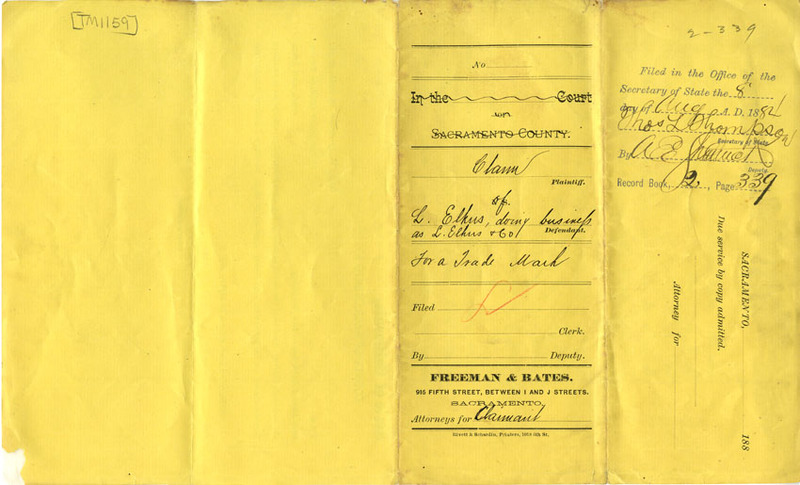 [TM1159]
No
In the Court
OF
SACRAMENTO COUNTY.
Claim
Plaintiff.
of
L. Elkus, doing business
as L. Elkus & Co
Defendant.
For a Trade Mark
Filed
Clerk.
By Deputy.
FREEMAN & BATES.
915 FIFTH STREET, BETWEEN I AND J STREETS.
SACRAMENTO.
Attorneys for Claimant
Printers, 1014 5th St.
2-339
Filed in the Office of the
Secretary of State the 8
day of Aug A. D. 1884
Thos L Thompson
Secretary of State
By A E
Deputy
Record Book, 2, Page 339
SACRAMENTO, 188
Due service by copy admitted.
Attorney for